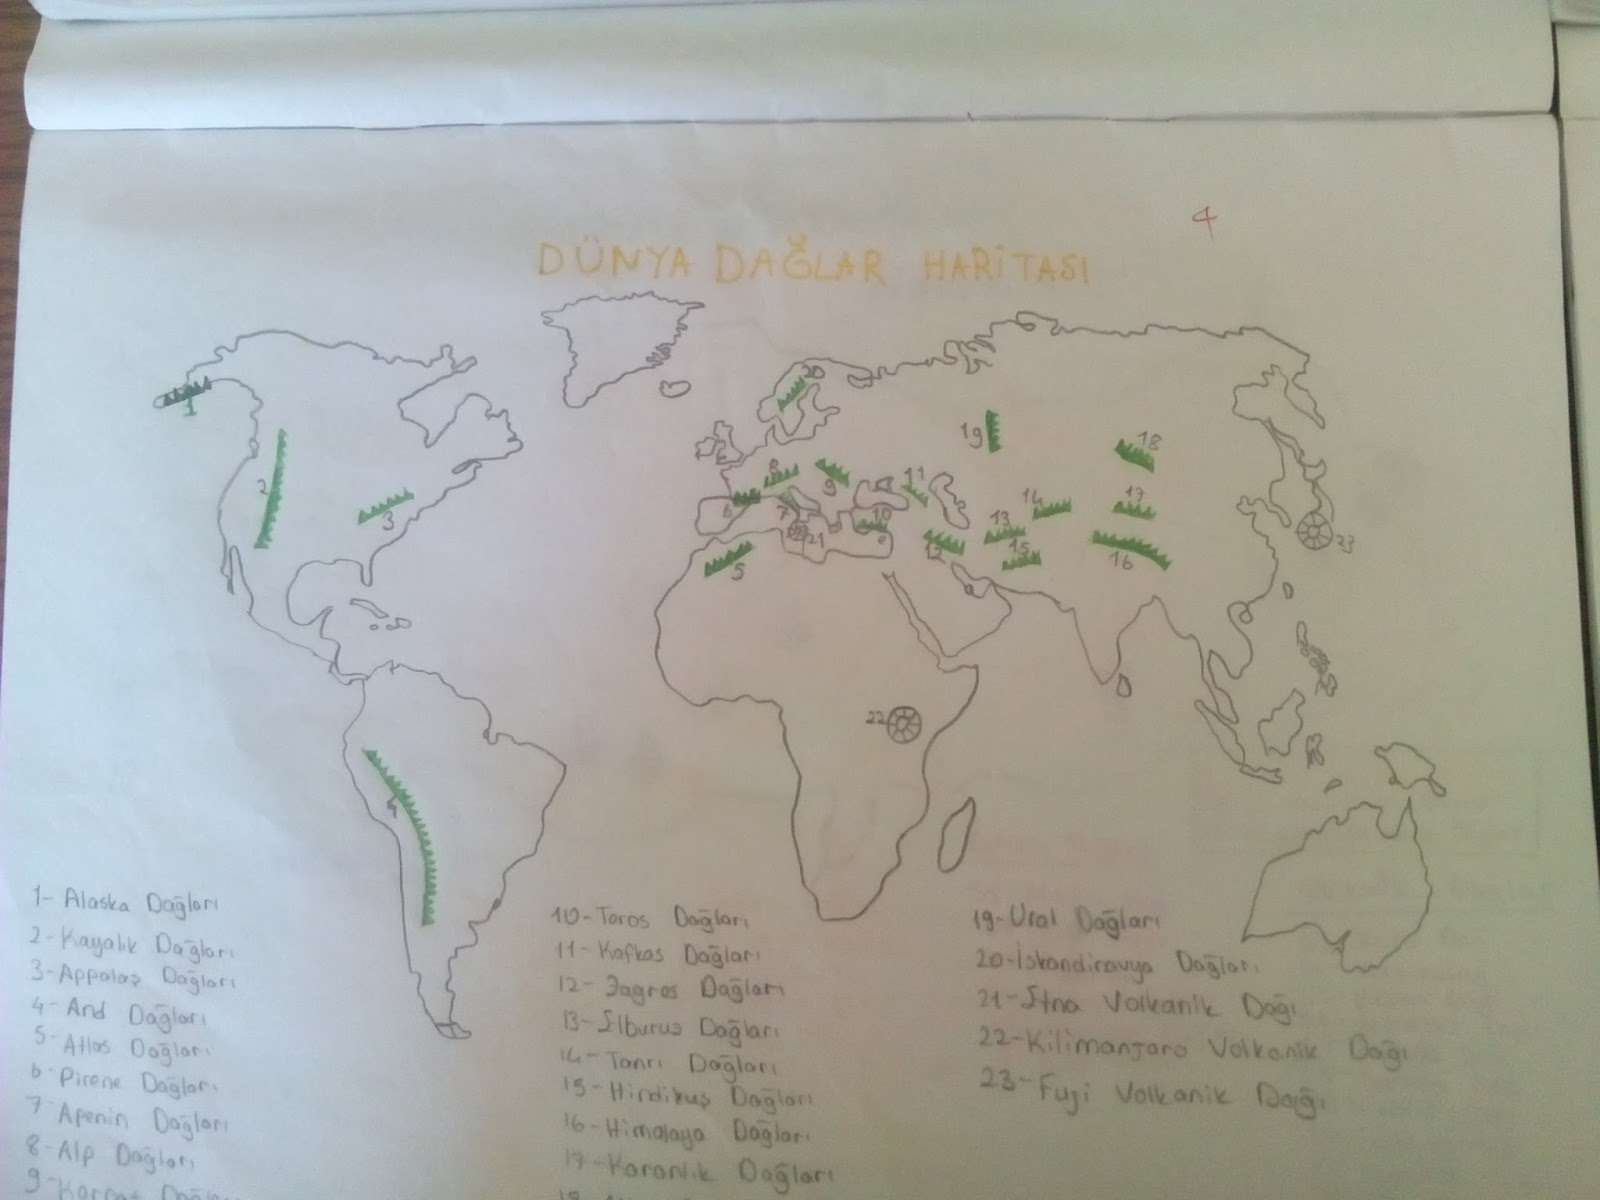 4
DÜNYA DAĞLAR HARİTASI
1
2
3
4
5
6
7
8
9
10
11
12
13
14
15
16
17
18
19
20
21
22
23
1- Alaska Dağları
2- Kayalık Dağları
3- Appalaş Dağları
4- And Dağları
5- Atlas Dağları
6- Pirene Dağları
7- Apenin Dağları
8- Alp Dağları
9- Karpat
10- Toros Dağları
11- Kafkas Dağları
12- Zagros Dağları
13- Elburus Dağları
14- Tanrı Dağları
15- Hindikuş Dağları
16- Himalaya Dağları
17- Karanlık Dağları
18
19- Ural Dağları
20- İskandinavya Dağları
21- Etna Volkanik Dağı
22- Kilimanjaro Volkanik Dağı
23- Fuji Volkanik Dağı